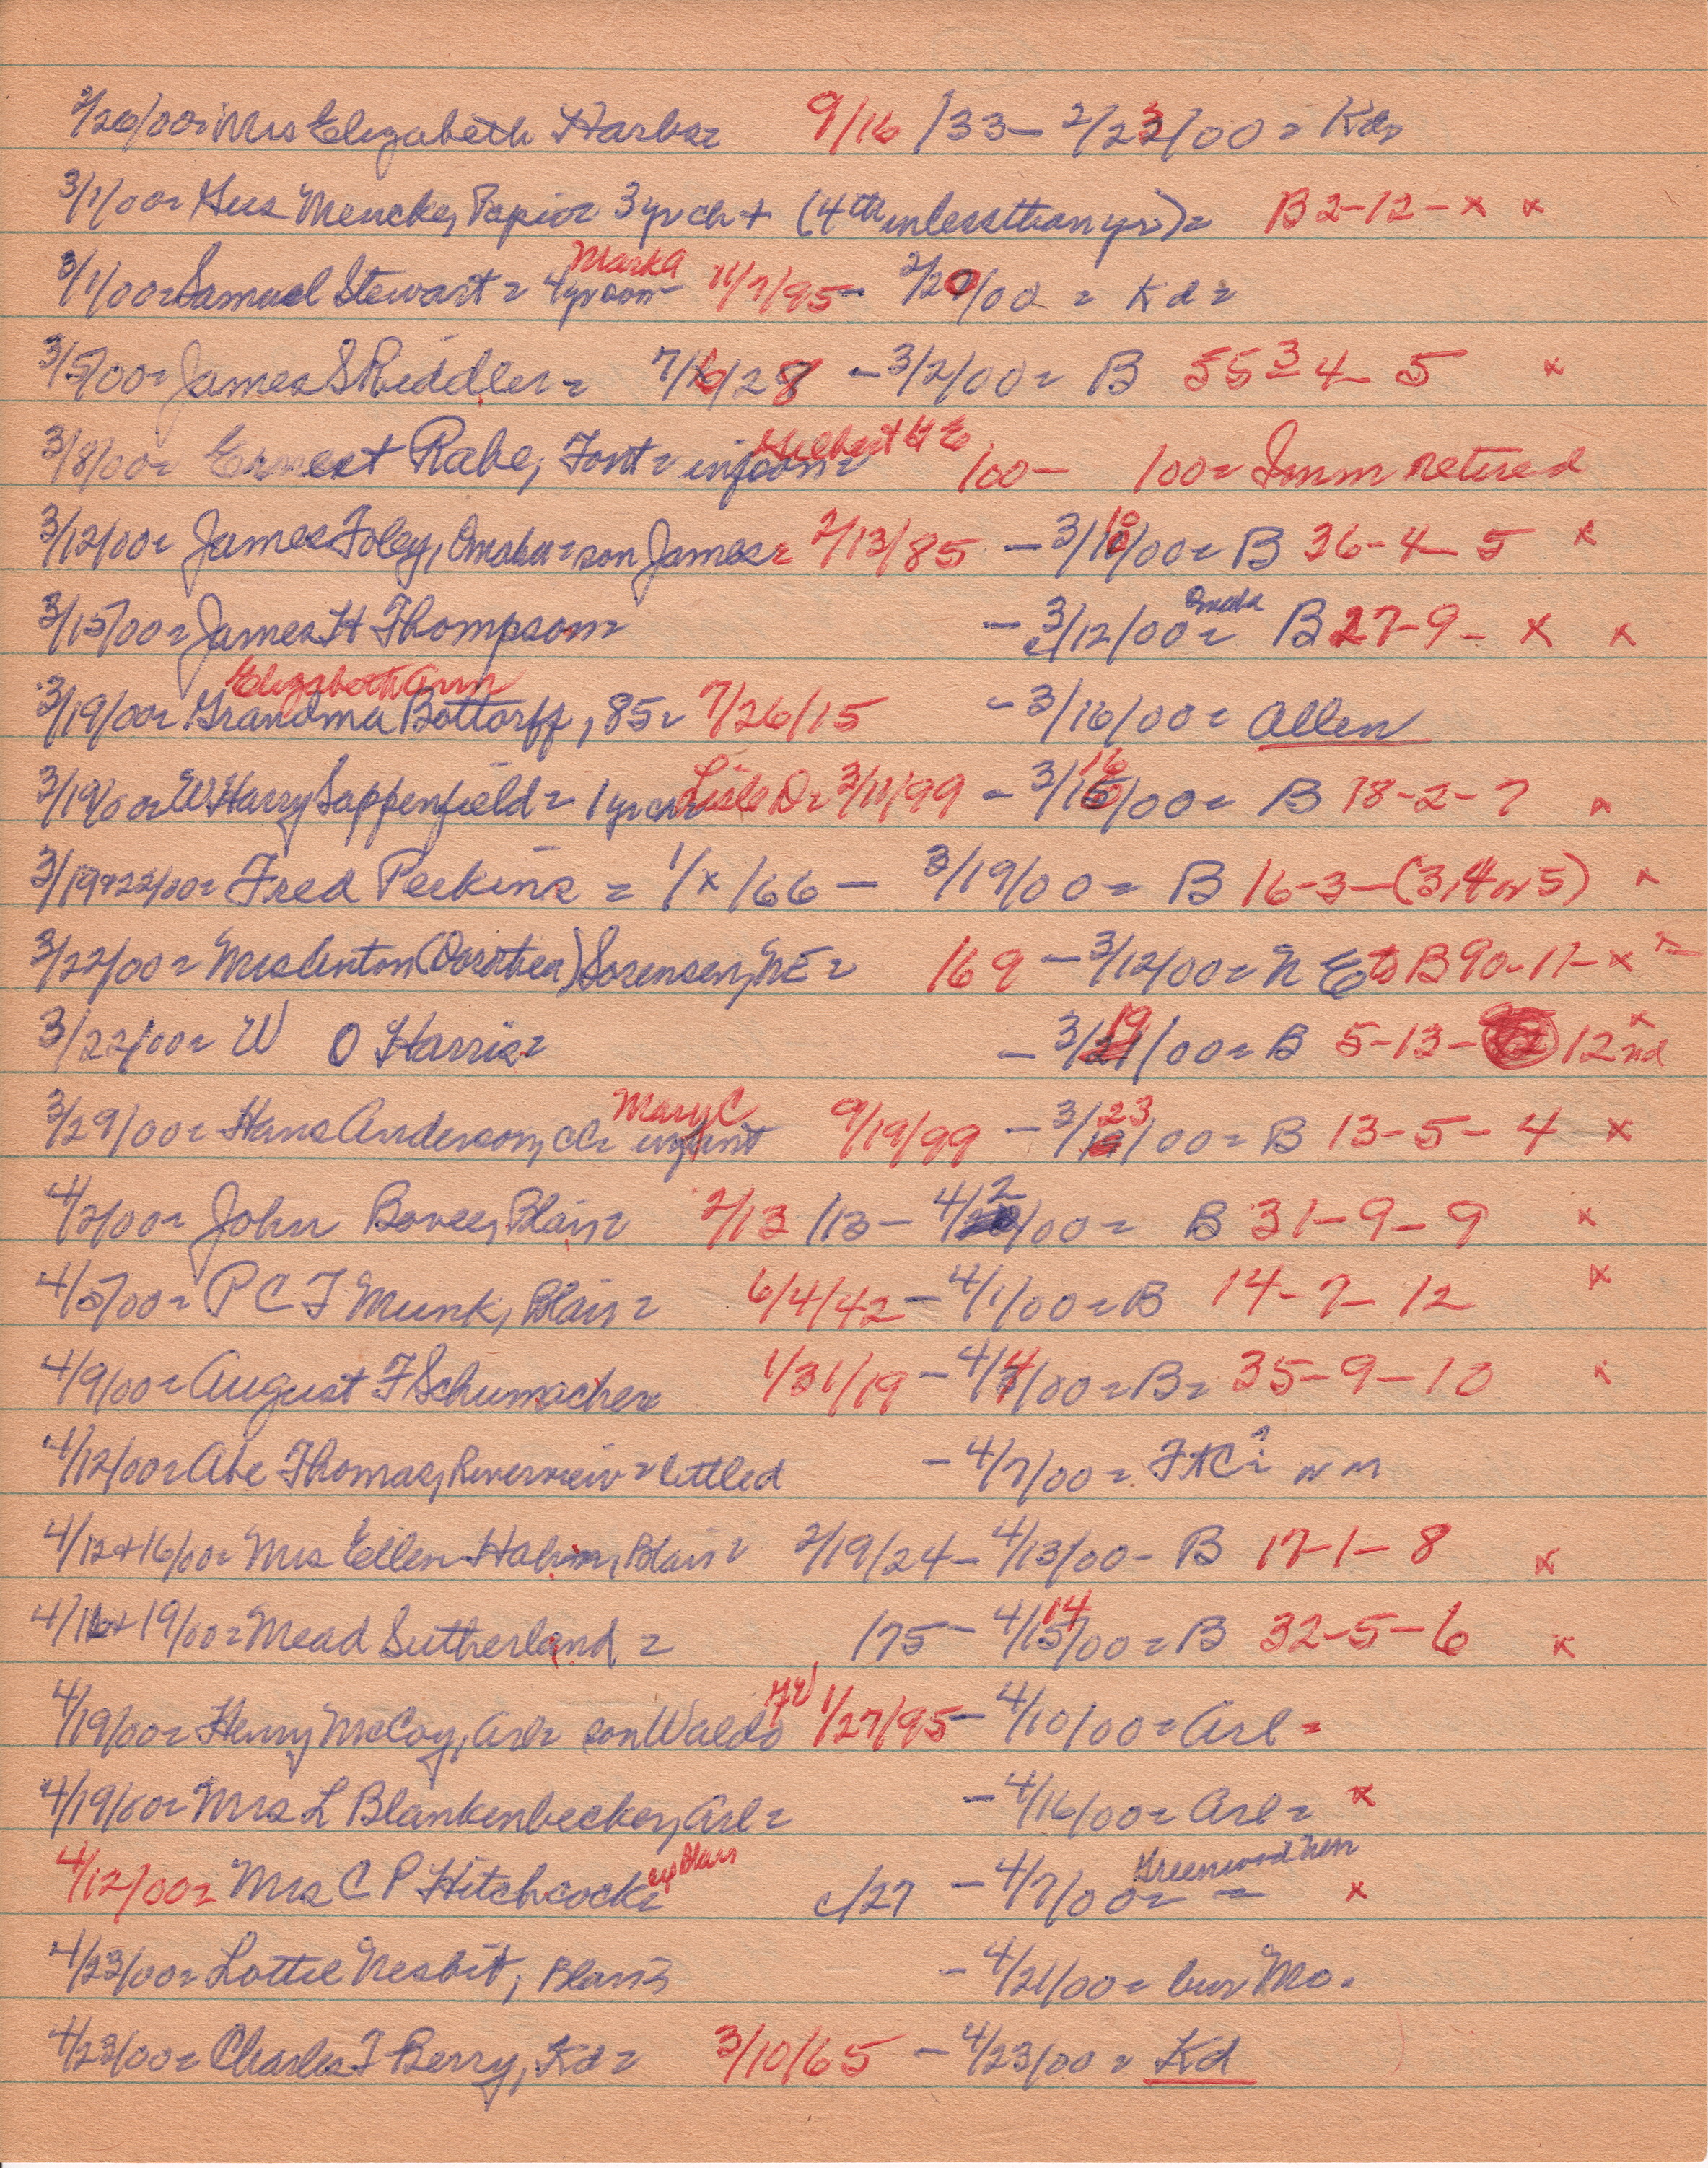 2/26/00= Mrs Elizabeth Harbs= 9/16/33 - 2/23/00 = Kd=
3/1/00= Gus Mencke, Papio= 3 yr ch + (4th in less than yr.)= B 2-12-x x
Mark A
3/1/00= Samuel Stewart = 4 yr son - 11/7/95 - 2/20/00 = Kd =
3/5/00= James S Riddler = 7/6/28 - 3/2/00= B 55-4-5 x
3/8/00= Ernest Rabe, Font= inf son= H E /00- /00= Imm retired
3/12/00= James Foley, Omaha = son James= 2/13/85 - 3/10/00= B 36-4-5 x
3/15/00= James H Thompson= - 3/12/00= Omaha B 27-9-x x
Elizabeth Ann
3/19/00= Grandma Bottorff, 85= 7/26/15 - 3/16/00= Allen
3/19/00= W Harry Sappenfield = 1 yr ch= Lisle D= 3/11/99 - 3/16/00= B 18-2-7 x
3/19+22/00= Fred Perkins = 1/x/66 - 3/19/00= B 16-3-(3,4 or 5) x
3/22/00= Mrs Anton (Dorothea) Sorensen, NE = /69 - 3/12/00= N E to B 90-11-x x
3/22/00= W O Harris= - 3/19/00= B 5-13- 12 nd x
Mary C
3/29/00= Hans Anderson, ch= infant 9/19/99 - 3/23/00= B 13-5-4 x
4/2/00= John Bovee, Blair= 2/13/13 - 4/2/00= B 31-9-9 x
4/5/00= P C F Munk, Blair= 6/4/42 - 4/1/00= B 14-7-12 x
4/9/00= August F Schumacher= 1/31/19 - 4/4/00= B= 35-9-10 x
4/12/00= Abe Thomas, Riverview = settled - 4/7/00= FtC ? = n m
4/12+16/00= Mrs Ellen Hahn, Blair= 2/19/24 - 4/13/00- B 17-1-8 x
4/16+19/00= Mead Sutherland = /75 - 4/14/00= B 32-5-6 x
4/19/00= Henry McCoy, Arl= son Waldo H W 1/27/95 - 4/10/00= Arl =
4/19/00= Mrs L Blankenbecker, Arl= - 4/16/00= Arl= x
4/12/00= Mrs C P Hitchcock= Blair c/27 - 4/7/00= Greenwood x
4/23/00= Lottie Nesbit, Blair= - 4/21/00= bur Mo.
4/23/00= Charles F Berry, Kd= 3/10/65 - 4/23/00= Kd